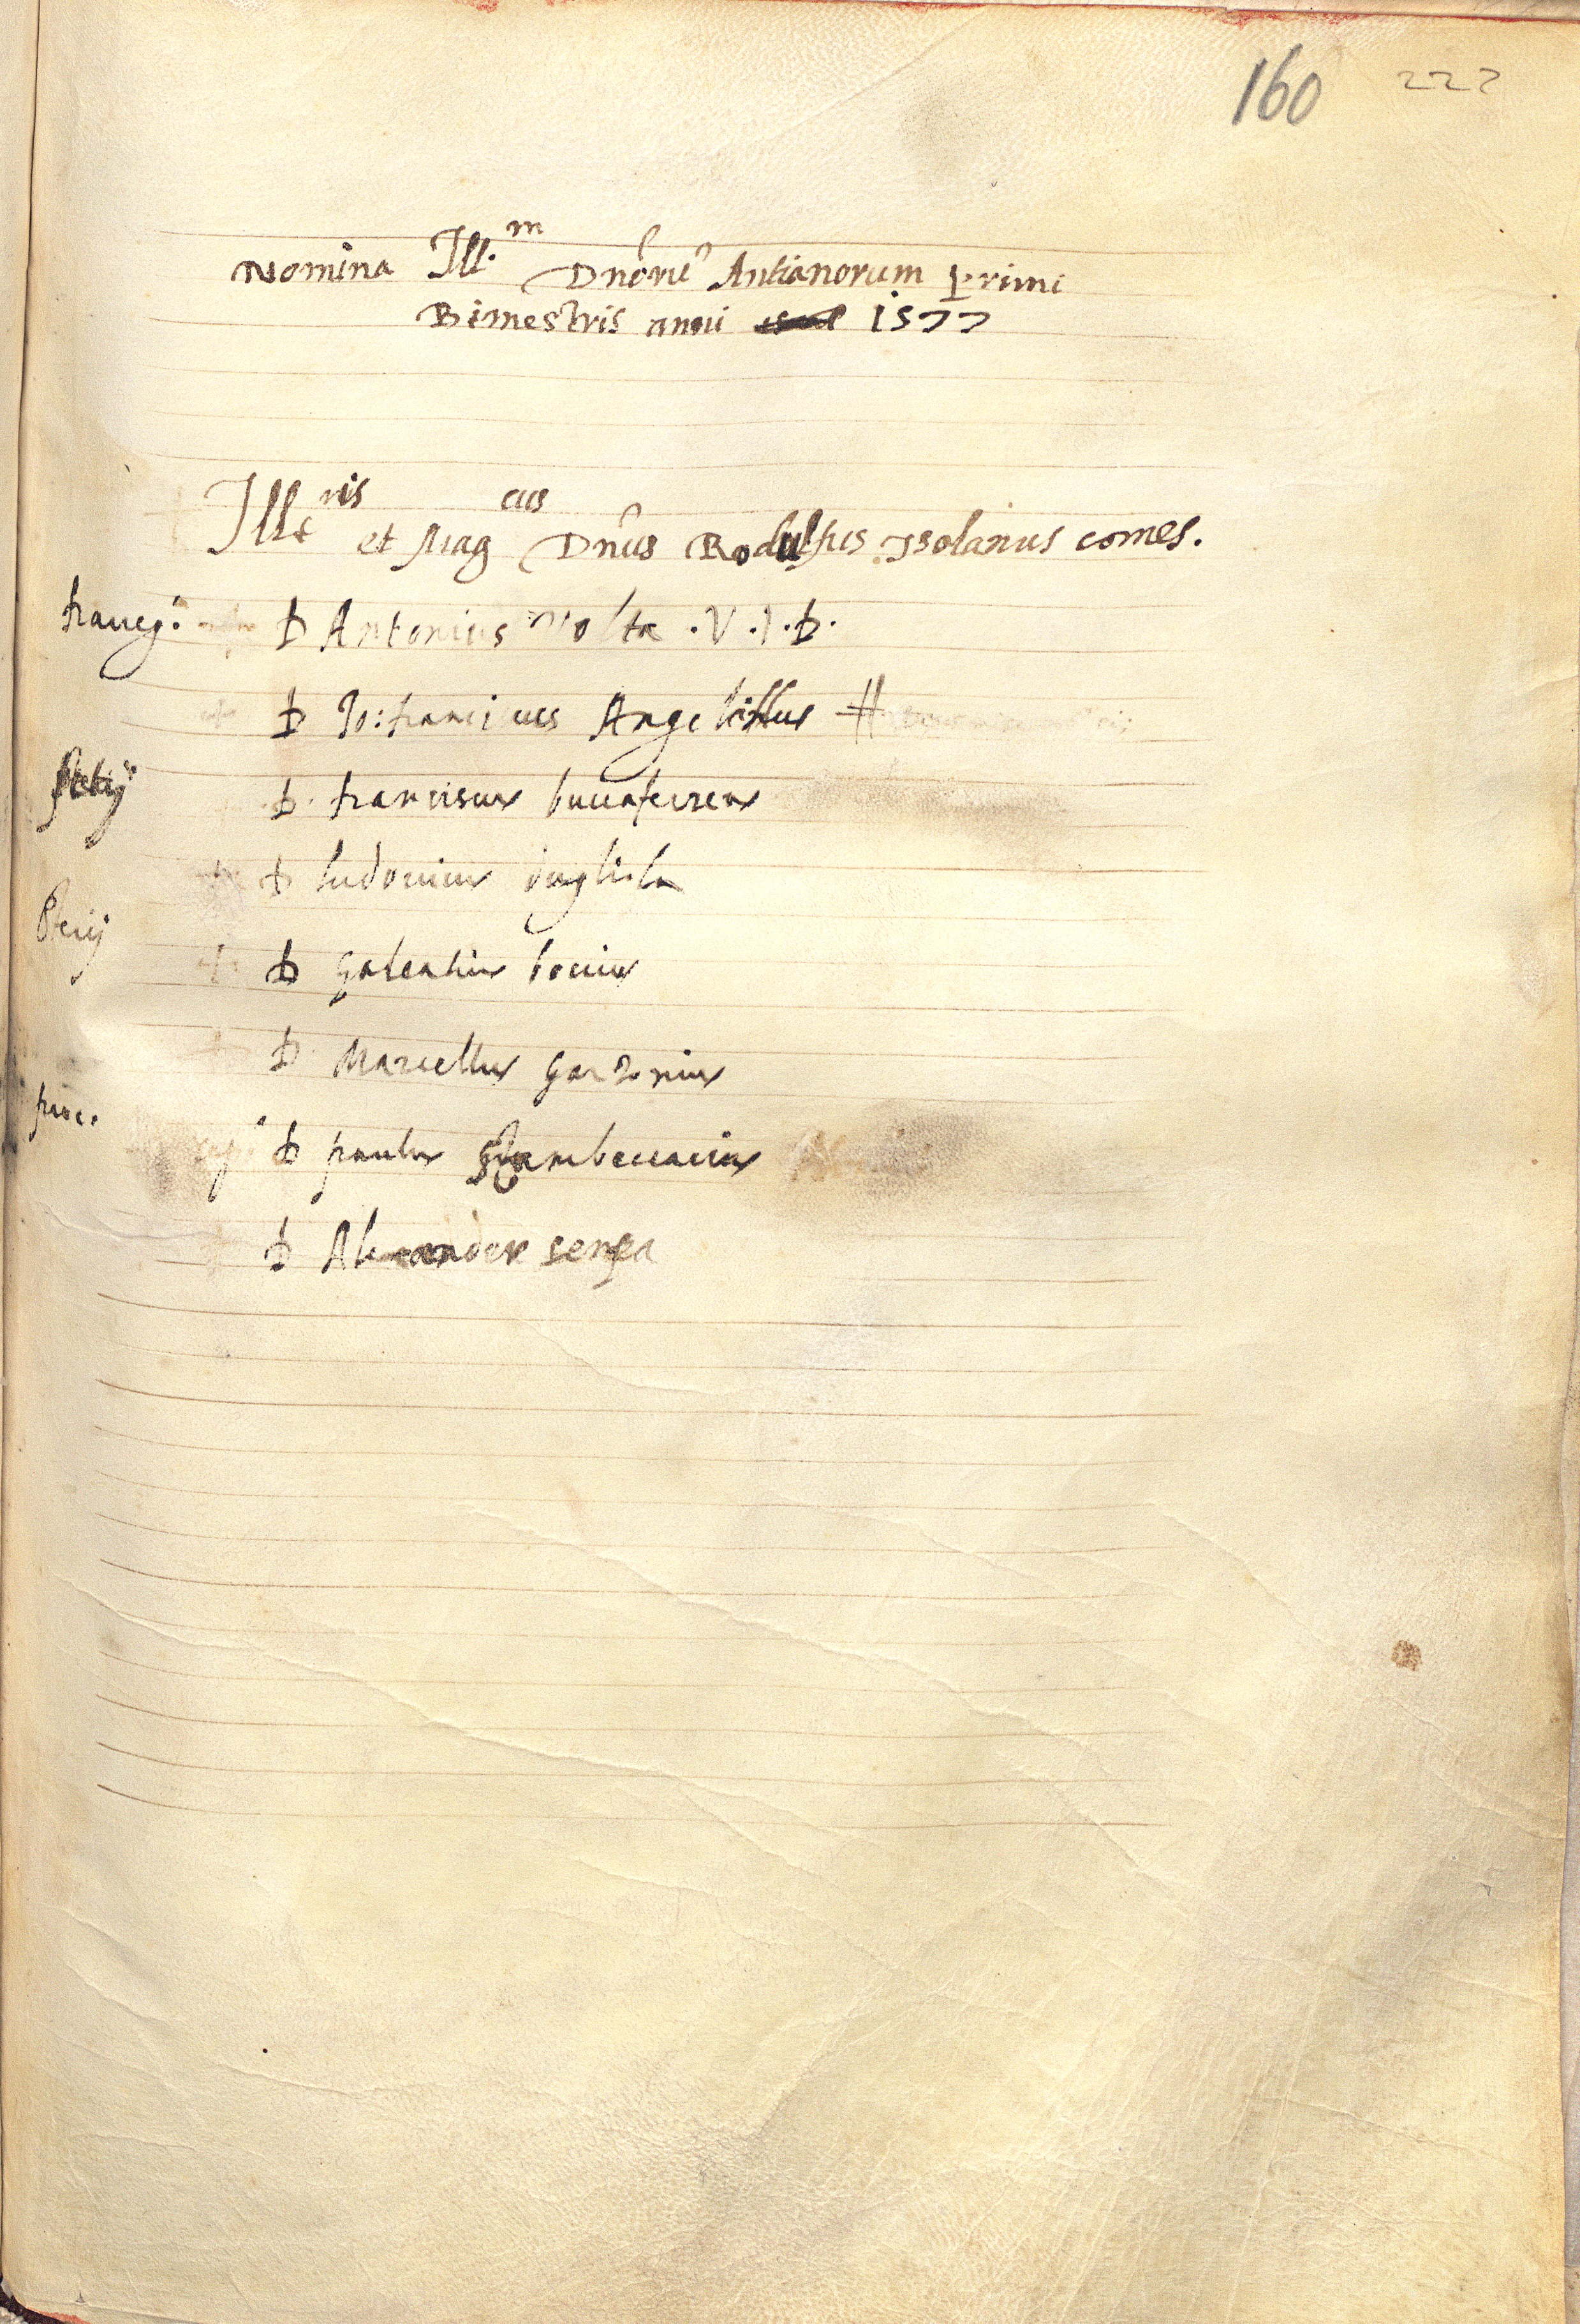 160 222
Nomina Ill.m Dnorũ Antianorum Primi
Bimestris anni 1577
Illris et Magcus Dnus Rodulfus Isolanus comes.
D Antonius Volta .V.I.D.
D Io: franciscus Angelellus #
Steij
D. franciscus buccaferrea
D ludovicus
Pterij
D galeatius bovius
D Marcellus garzonius
proc.
D paulus Zambeccarius
D Alexander senga